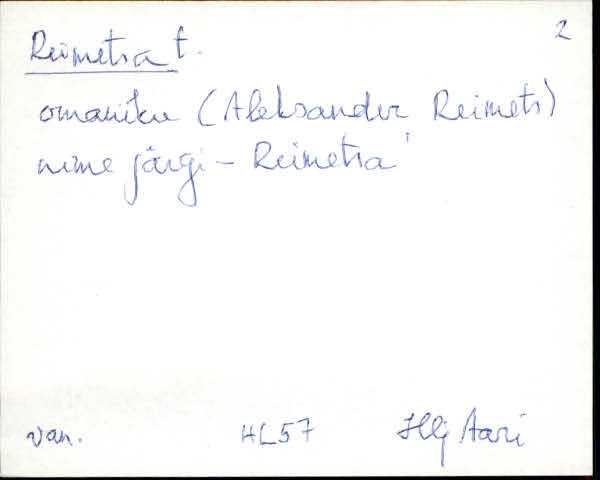 2
Reimetsa t.
omaniku (Aleksander Reimets)
nime järgi – Reimetsa
van. HL57 Hlj Aari